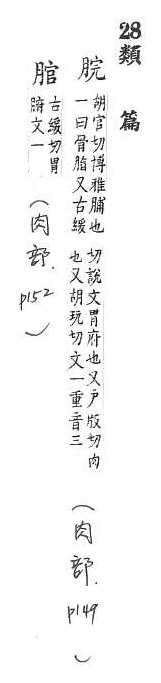 28類
篇
脘
胡官切博雅脯也
一曰骨脂又古緩
切說文胃府也又戶版切肉
也又胡玩切文一重音三
(肉部. p149)
腤
古緩切胃
腑文一
(肉部. p152)